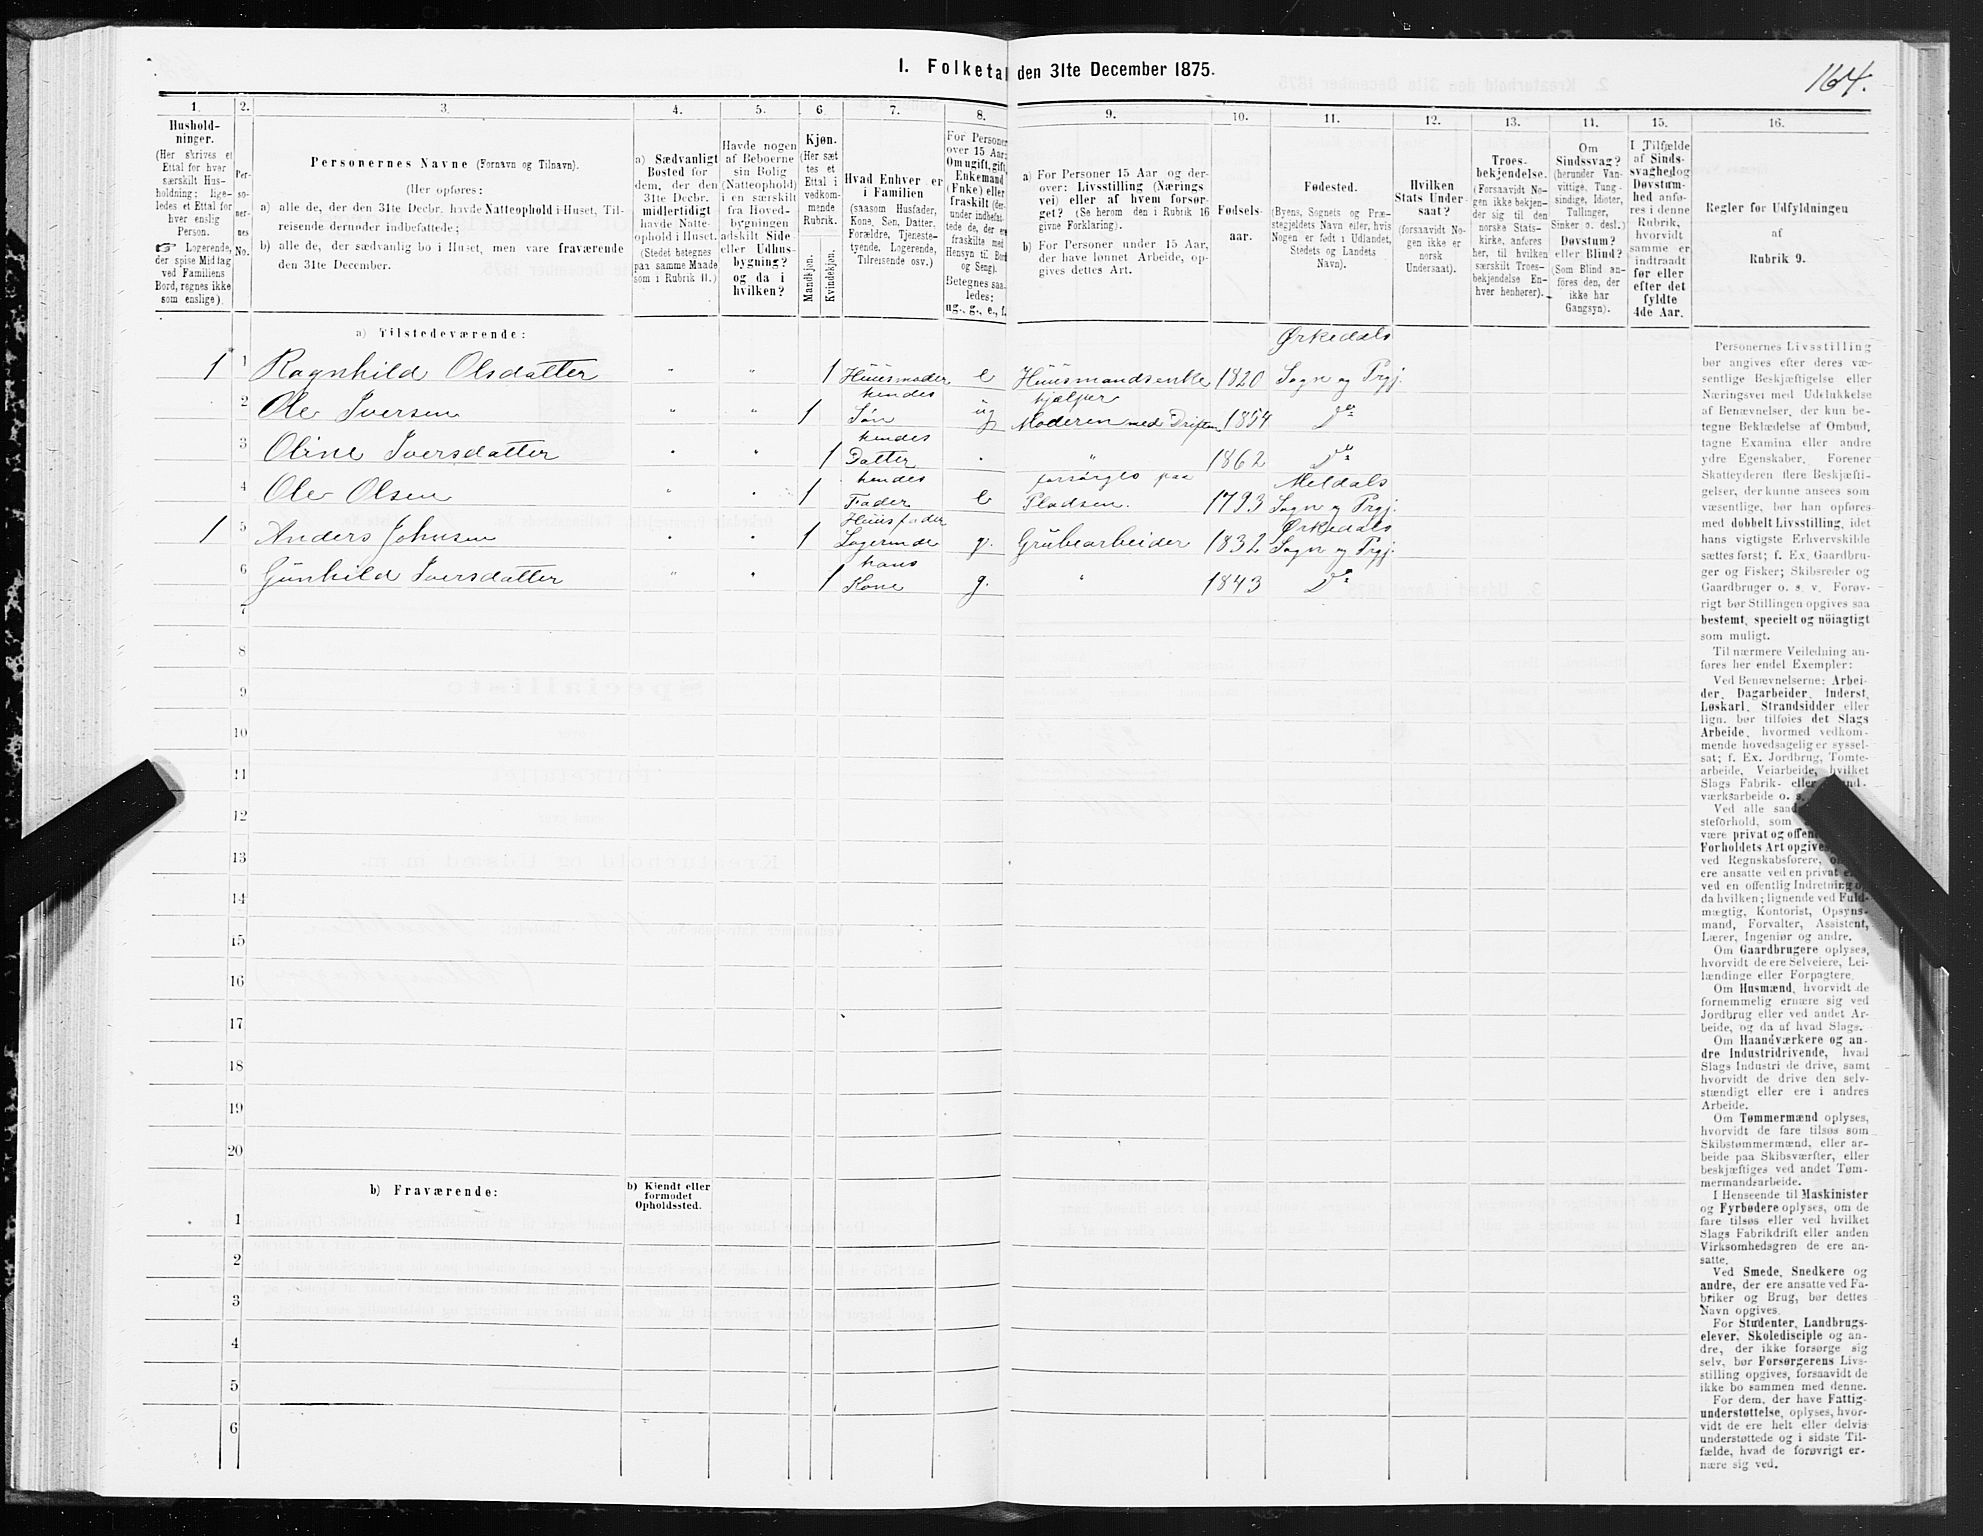 I. Folketal den 31te December 1875.
164.
1.
Hushold-
ninger.
(Her skrives et
Ettal for hver
særskilt Hus-
holdning; lige-
ledes et Ettal for
hver enslig
Person.
☞ Logerende,
der spise Middag
ved Familiens
Bord, regnes ikke
som enslige).
2.
Per-
so-
ner-
nes
No.
3.
Personernes Navne (Fornavn og Tilnavn).
(Her opføres:
a) alle de, der den 31te Decbr. havde Natteophold i Huset, Til-
reisende derunder indbefattede;
b) alle de, der sædvanlig bo i Huset, men vare fraværende
den 31te December.
4.
a) Sædvanligt
Bosted for
dem, der den
31te Decbr.
midlertidigt
havde Natte-
ophold i Huset.
(Stedet betegnes
paa samme Maade
som i Rubrik 11.)
5.
Havde nogen
af Beboerne
sin Bolig
(Natteophold)
i en særskilt
fra Hoved-
bygningen
adskilt Side-
eller Udhus-
bygning?
og da i
hvilken?
6
Kjøn.
(Her sæt-
tes et
Ettal i
vedkom-
mende
Rubrik.
Mandkjøn.
Kvindekjøn.
7.
Hvad Enhver er
i Familien
(saasom Husfader,
Kone, Søn, Datter,
Forældre, Tjeneste-
tyende, Logerende,
Tilreisende osv.)
8.
For Personer
over 15 Aar:
Om ugift, gift,
Enkemand
(Enke) eller
fraskilt (der-
under indbefat-
tede de, der ere
fraskilte med
Hensyn til Bord
og Seng).
Betegnes saa-
ledes:
ug., g., e., f.
9.
a) For Personer 15 Aar og der-
over: Livsstilling (Nærings-
vei) eller af hvem forsør-
get? (Se herom den i Rubrik 16
givne Forklaring).
b) For Personer under 15 Aar,
der have lønnet Arbeide, op-
gives dettes Art.
10.
Fødsels-
aar.
11.
Fødested.
(Byens, Sognets og Præ-
stegjeldets Navn eller, hvis
Nogen er født i Udlandet,
Stedets og Landets
Navn).
12.
Hvilken
Stats Under-
saat?
(forsaavidt No-
gen ikke er
norsk
Undersaat).
13.
Troes-
bekjendelse.
(Forsaavidt No-
gen ikke bekjen-
der sig til den
norske Stats-
kirke, anføres
her, til hvilken
særskilt Troes-
bekjendelse En-
hver henhører).
14.
Om
Sindssvag?
(herunder Van-
vittige, Tung-
sindige, Idioter,
Tullinger,
Sinker o. desl.)
Døvstum?
eller Blind?
(Som Blind an-
føres den, der
ikke har
Gangsyn).
15.
I Tilfælde
af Sinds-
svaghed og
Døvstum-
hed anfø-
res i denne
Rubrik,
hvorvidt
samme er
indtraadt
før eller
efter det
fyldte
4de Aar.
16.
Regler for Udfyldningen
af
Rubrik 9.
a) Tilstedeværende:
1 1 Ragnhild Olsdatter " " 1 Huusmoder e Huusmandsenke 1820 Ørkedals Sogn og Prgj.
2 Ole Iversen " " 1 hendes Søn ug hjælper Moderen med Driften 1854 Do
3 Oline Iversdatter " " 1 hendes Datter " " 1862 Do
4 Ole Olsen " " 1 hendes Fader e forsørges paa Pladsen. 1793 Meldals Sogn og Prgj.
1 5 Anders Johnsen " " 1 Huusfader Logerende g. Grubearbeider 1832 Ørkedals Sogn og Prgj.
6 Gunhild Iversdatter " " 1 hans Kone g. " 1843 Do
7
8
9
10
11
12
13
14
15
16
17
18
19
20
b) Fraværende:
b) Kjendt eller
formodet
Opholdssted.
1
2
3
4
5
6
Personernes Livsstilling
bør angives efter deres væ-
sentlige Beskjæftigelse eller
Næringsvei med Udelukkelse
af Benævnelser, der kun be-
tegne Beklædelse af Ombud,
tagne Examina eller andre
ydre Egenskaber. Forener
Skatteyderen flere Beskjæfti-
gelser, der kunne ansees som
væsentlige, bør han opføres
med dobbelt Livsstilling, idet
hans vigtigste Erhvervskilde
sættes først; f. Ex. Gaardbru-
ger og Fisker; Skibsreder og
Gaardbruger o. s. v. Forøv-
rigt bør Stillingen opgives saa
bestemt, specielt og nöiagtigt
som muligt.
Til nærmere Veiledning an-
føres her endel Exempler:
Ved Benævnelserne: Arbei-
der, Dagarbeider, Inderst,
Løskarl, Strandsidder eller
lign. bør tilføies det Slags
Arbeide, hvormed vedkom-
mende hovedsagelig er syssel-
sat; f. Ex. Jordbrug, Tomte-
arbeide, Veiarbeide, hvilket
Slags Fabrik- eller
værksarbeide o. s.
Ved alle
steforhold, som
være privat og
Forholdets Art opgives,
ved Regnskabsførere,
ere ansatte ved en privat
ved en offentlig Indretning
da hvilken; lignende ved Fuld-
mægtig, Kontorist, Opsyns-
mand, Forvalter, Assistent,
Lærer, Ingeniør og andre.
Om Gaardbrugere oplyses,
hvorvidt de ere Selveiere, Lei-
lændinge eller Forpagtere.
Om Husmænd, hvorvidt de
fornemmelig ernære sig ved
Jordbrug eller ved andet Ar-
beide, og da af hvad Slags.
Om Haandværkere og an-
dre Industridrivende, hvad
Slags Industri de drive, samt
hvorvidt de drive den selv-
stændigt eller ere i andres
Arbeide.
Om Tømmermænd oplyses,
hvorvidt de fare tilsøs som
Skibstømmermænd, eller ar-
beide paa Skibsværfter, eller
beskjæftiges ved andet Tøm-
mermandsarbeide.
I Henseende til Maskinister
og Fyrbødere oplyses, om de
fare tilsøs eller ved hvilket
Slags Fabrikdrift eller anden
Virksomhedsgren de ere an-
satte.
Ved Smede, Snedkere og
andre, der ere ansatte ved Fa-
briker og Brug, bør dettes
Navn opgives.
For Studenter, Landbrugs-
elever, Skoledisciple og an-
dre, der ikke forsørge sig
selv, bør Forsørgerens Livs-
stilling opgives, forsaavidt de
ikke bo sammen med denne.
For dem, der have Fattig-
understøttelse, oplyses, hvor-
vidt de ere helt eller delvis
understøttede og i sidste Til-
fælde, hvad de forøvrigt er-
nære sig ved.